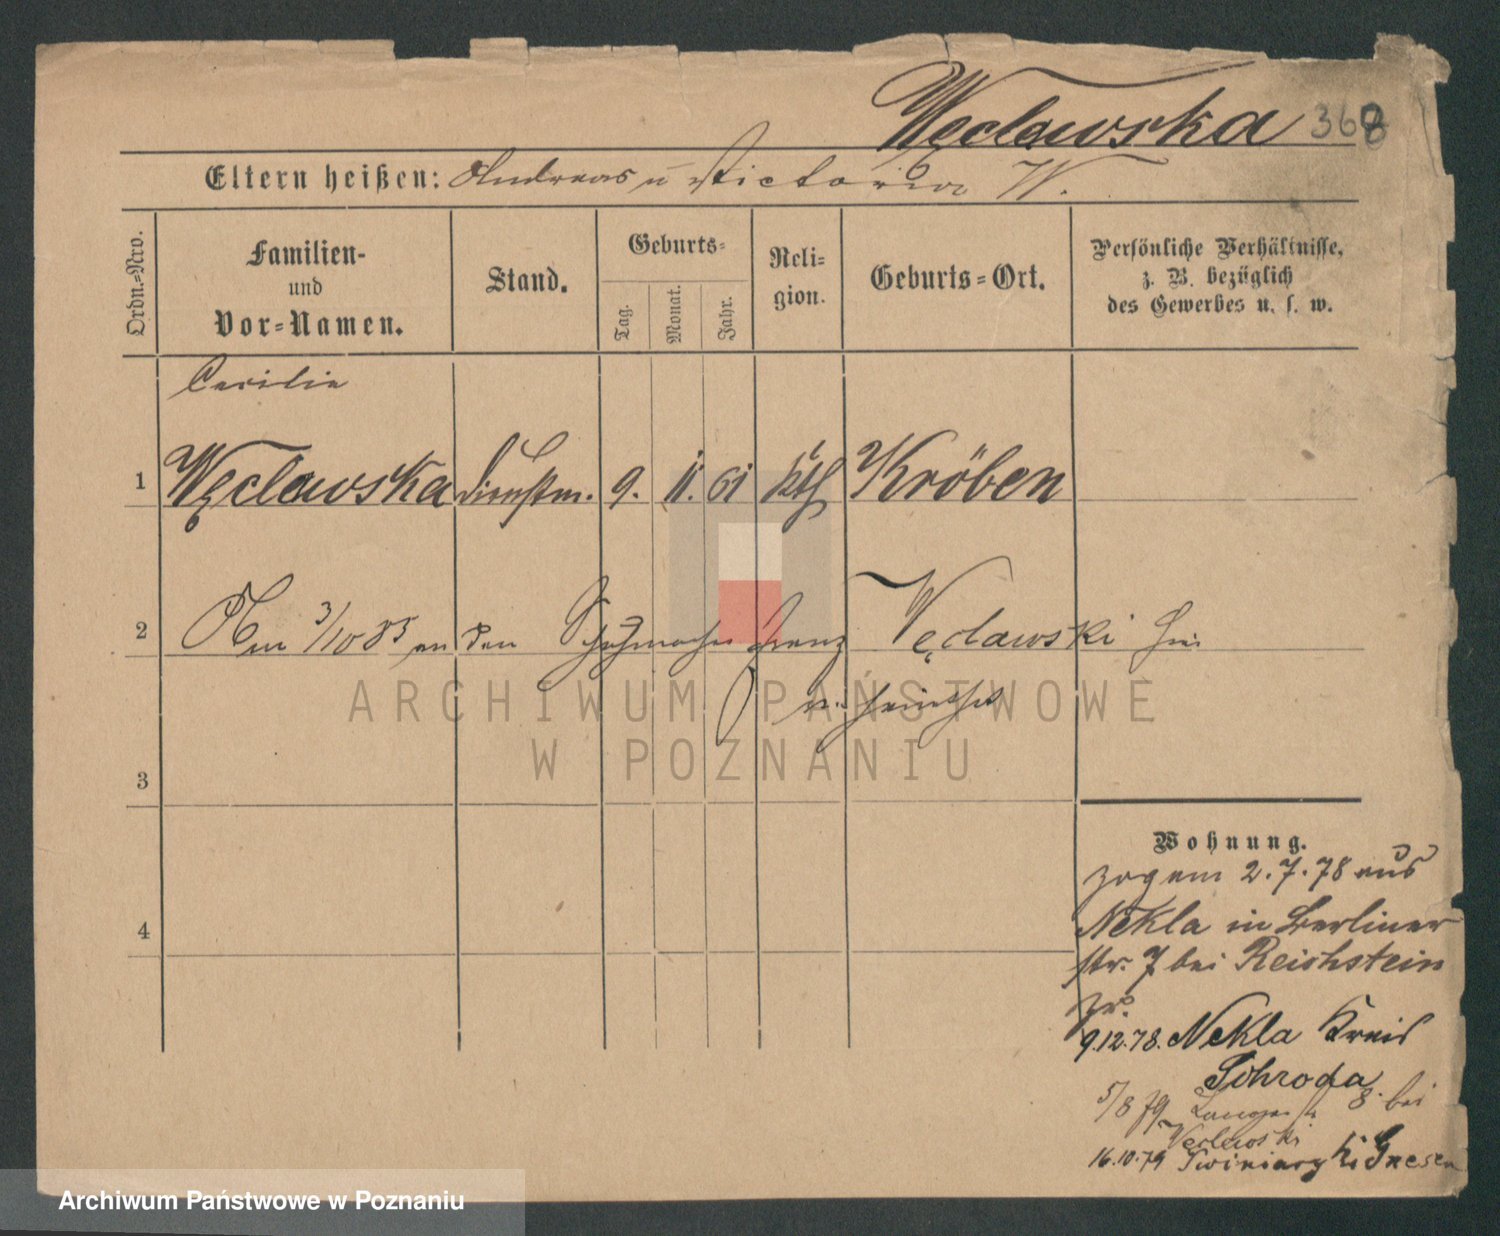 Węclawska 368
Eltern heißen: Andreas u Victoria W.
Ordn.-Nro.
Familien-
und
Vor-Namen.
Stand.
Geburts-
Tag.
Monat.
Jahr.
Reli-
gion.
Geburts-Ort.
Persönliche Verhältnisse,
z. B. bezüglich
des Gewerbes u. s. w.
Cecilie
1 Węclawska Dienstm. 9. 11. 61 kth Kröben
2 Am 3/10 85 an den Schuhmacher Franz Węclawski hier
ARCHIWUM PAŃSTWOWE
W POZNANIU
3
Wohnung.
zog am 2.7.78 aus
Nekla in Berliner
str. 7 bei Reichstein
4
9.12.78. Nekla Kreis
Schroda
5/8 79 8 bei
Węclawski
16.10.79 Gnesen
Archiwum Państwowe w Poznaniu